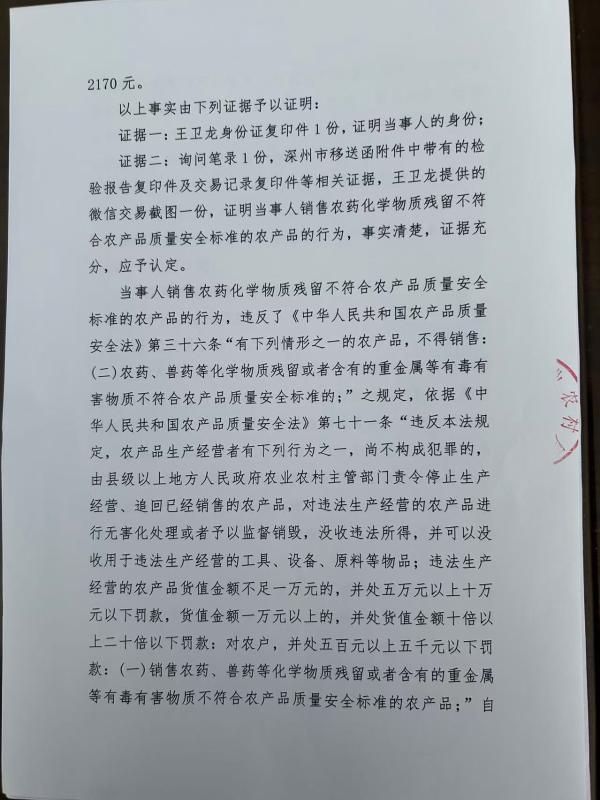 2170 元。
以上事实由下列证据予以证明：
证据一：王卫龙身份证复印件 1 份，证明当事人的身份；
证据二：询问笔录 1 份，深州市移送函附件中带有的检
验报告复印件及交易记录复印件等相关证据，王卫龙提供的
微信交易截图一份，证明当事人销售农药化学物质残留不符
合农产品质量安全标准的农产品的行为，事实清楚，证据充
分，应予认定。
当事人销售农药化学物质残留不符合农产品质量安全
标准的农产品的行为，违反了《中华人民共和国农产品质量
安全法》第三十六条“有下列情形之一的农产品，不得销售：
(二)农药、兽药等化学物质残留或者含有的重金属等有毒有
害物质不符合农产品质量安全标准的；”之规定，依据《中
华人民共和国农产品质量安全法》第七十一条“违反本法规
定，农产品生产经营者有下列行为之一，尚不构成犯罪的，
由县级以上地方人民政府农业农村主管部门责令停止生产
经营、追回已经销售的农产品，对违法生产经营的农产品进
行无害化处理或者予以监督销毁，没收违法所得，并可以没
收用于违法生产经营的工具、设备、原料等物品；违法生产
经营的农产品货值金额不足一万元的，并处五万元以上十万
元以下罚款，货值金额一万元以上的，并处货值金额十倍以
上二十倍以下罚款：对农户，并处五百元以上五千元以下罚
款：(一)销售农药、兽药等化学物质残留或者含有的重金属
等有毒有害物质不符合农产品质量安全标准的农产品；”自
农村